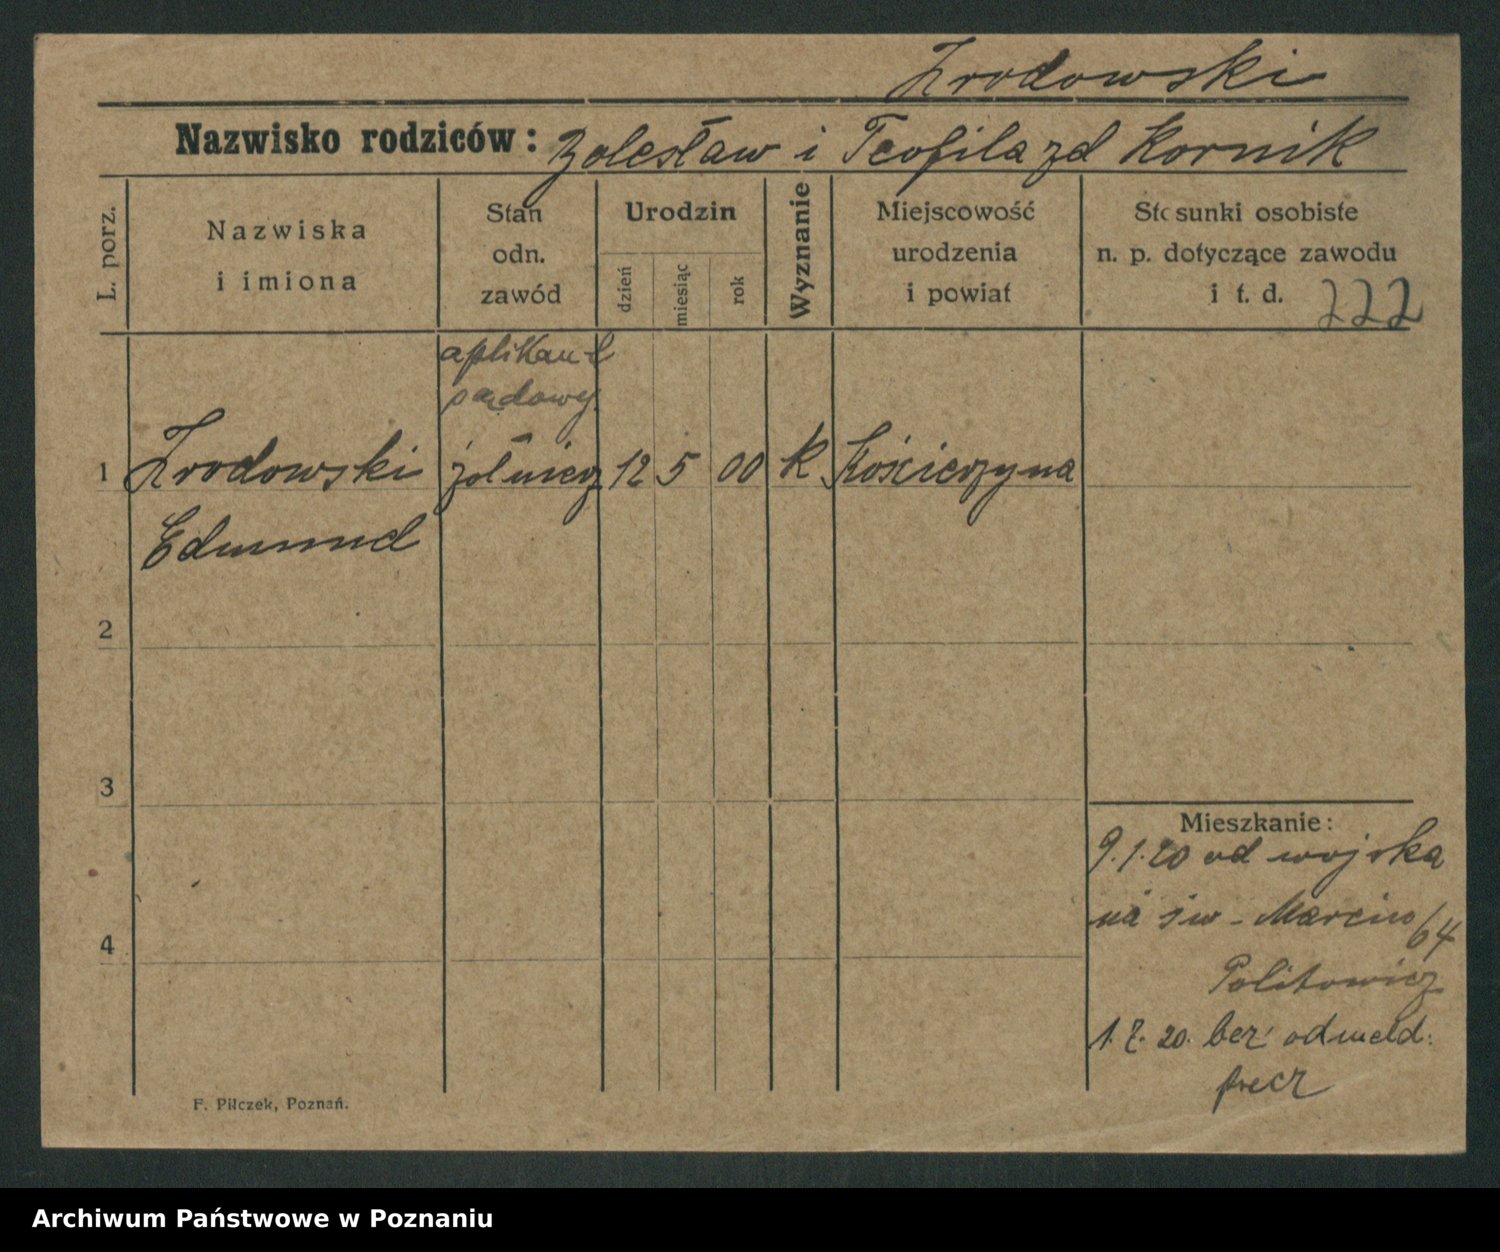 Zrodowski
Nazwisko rodziców: Bolesław i Teofila zd Kornik
L. porz.
Nazwiska
i imiona
Stan
odn.
zawód
Urodzin
dzień
miesiąc
rok
Wyznanie
Miejscowość
urodzenia
i powiat
Stosunki osobiste
n. p. dotyczące zawodu
i t. d. 222
aplikant
sądowy
1 Zrodowski żołnierz 12 5 00 k Kościerzyna
Edmund
2
3
4
Mieszkanie:
9.1.20 od wojska
na św - Marcin 64
Politowicz
1.7.20. bez odmeld.
precz
F. Pilczek, Poznań.
Archiwum Państwowe w Poznaniu